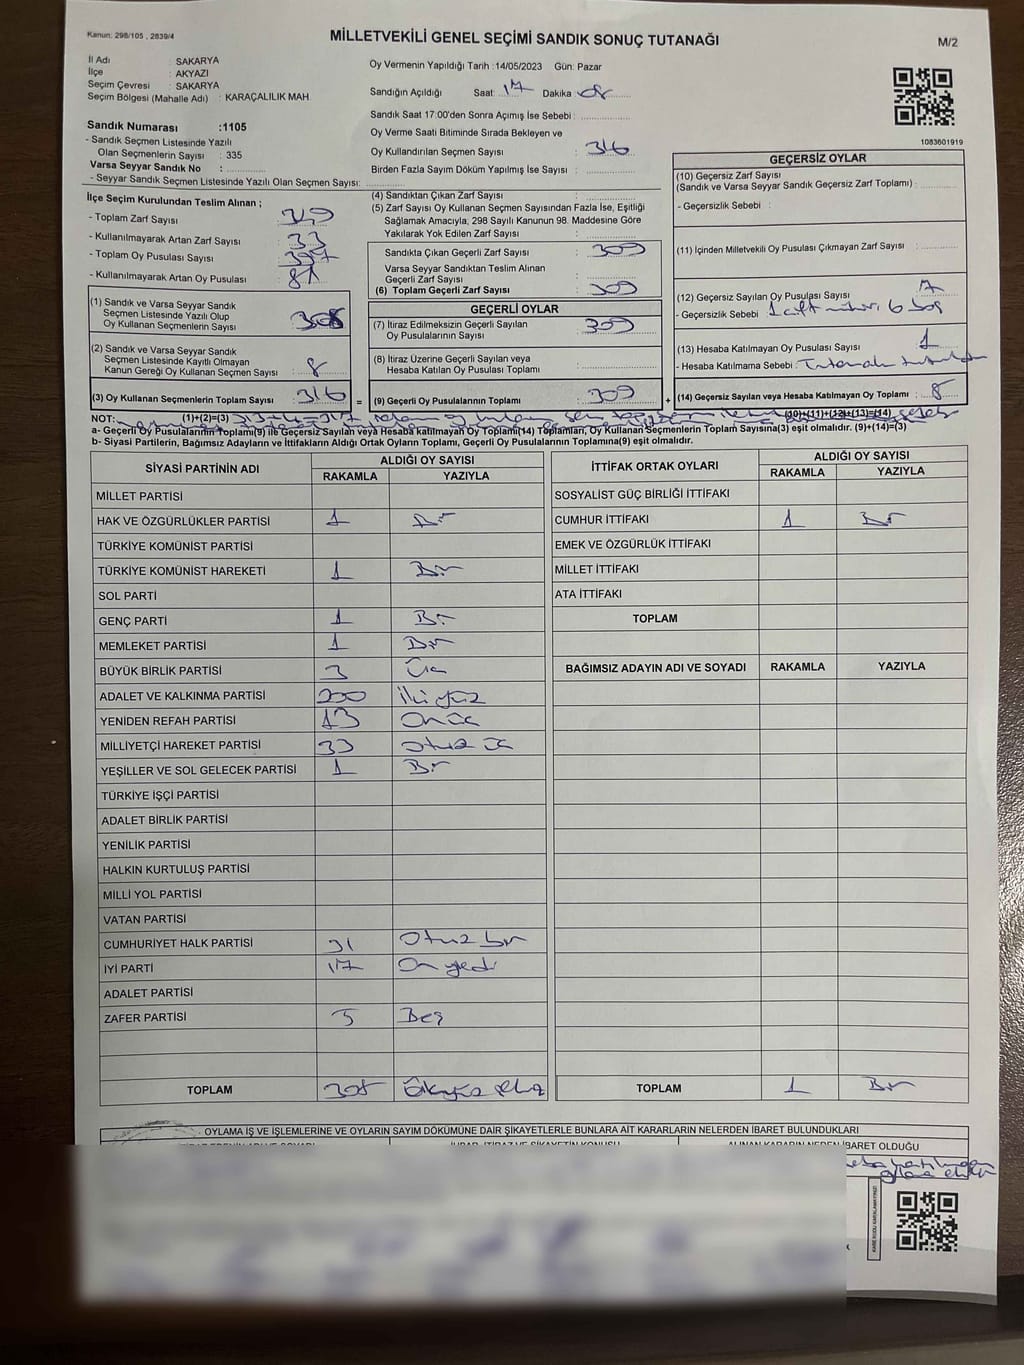 Kanun: 298/105 , 2839/4
MİLLETVEKİLİ GENEL SEÇİMİ SANDIK SONUÇ TUTANAĞI
M/2
İl Adı : SAKARYA
İlçe : AKYAZI
Seçim Çevresi : SAKARYA
Seçim Bölgesi (Mahalle Adı) : KARAÇALILIK MAH.
Sandık Numarası :1105
- Sandık Seçmen Listesinde Yazılı
Olan Seçmenlerin Sayısı : 335
Varsa Seyyar Sandık No :
- Seyyar Sandık Seçmen Listesinde Yazılı Olan Seçmen Sayısı:
Oy Vermenin Yapıldığı Tarih :14/05/2023 Gün: Pazar
Sandığın Açıldığı Saat: 17 Dakika 08
Sandık Saat 17:00'den Sonra Açımış İse Sebebi :
Oy Verme Saati Bitiminde Sırada Bekleyen ve
Oy Kullandırılan Seçmen Sayısı : 316
Birden Fazla Sayım Döküm Yapılmış İse Sayısı :
1083601919
İlçe Seçim Kurulundan Teslim Alınan ;
- Toplam Zarf Sayısı : 349
- Kullanılmayarak Artan Zarf Sayısı : 33
- Toplam Oy Pusulası Sayısı : 397
- Kullanılmayarak Artan Oy Pusulası : 81
(1) Sandık ve Varsa Seyyar Sandık
Seçmen Listesinde Yazılı Olup
Oy Kullanan Seçmenlerin Sayısı : 308
(2) Sandık ve Varsa Seyyar Sandık
Seçmen Listesinde Kayıtlı Olmayan
Kanun Gereği Oy Kullanan Seçmen Sayısı : 8
(3) Oy Kullanan Seçmenlerin Toplam Sayısı : 316
(4) Sandıktan Çıkan Zarf Sayısı :
(5) Zarf Sayısı Oy Kullanan Seçmen Sayısından Fazla İse, Eşitliği
Sağlamak Amacıyla, 298 Sayılı Kanunun 98. Maddesine Göre
Yakılarak Yok Edilen Zarf Sayısı :
Sandıkta Çıkan Geçerli Zarf Sayısı : 309
Varsa Seyyar Sandıktan Teslim Alınan
Geçerli Zarf Sayısı :
(6) Toplam Geçerli Zarf Sayısı : 309
GEÇERLİ OYLAR
(7) İtiraz Edilmeksizin Geçerli Sayılan
Oy Pusulalarının Sayısı : 309
(8) İtiraz Üzerine Geçerli Sayılan veya
Hesaba Katılan Oy Pusulası Toplamı :
= (9) Geçerli Oy Pusulalarının Toplamı : 309
GEÇERSİZ OYLAR
(10) Geçersiz Zarf Sayısı
(Sandık ve Varsa Seyyar Sandık Geçersiz Zarf Toplamı) :
- Geçersizlik Sebebi :
(11) İçinden Milletvekili Oy Pusulası Çıkmayan Zarf Sayısı :
(12) Geçersiz Sayılan Oy Pusulası Sayısı : 7
- Geçersizlik Sebebi : 1 çift mühür 6 boş
(13) Hesaba Katılmayan Oy Pusulası Sayısı : 1
- Hesaba Katılmama Sebebi : Tutanak tutuldu
+ (14) Geçersiz Sayılan veya Hesaba Katılmayan Oy Toplamı : 8
NOT: (1)+(2)=(3) (10)+(11)+(12)+(13)=(14)
a- Geçerli Oy Pusulalarının Toplamı(9) ile Geçersiz Sayılan veya Hesaba katılmayan Oy Toplamı(14) Toplamları, Oy Kullanan Seçmenlerin Toplam Sayısına(3) eşit olmalıdır. (9)+(14)=(3)
b- Siyasi Partilerin, Bağımsız Adayların ve İttifakların Aldığı Ortak Oyların Toplamı, Geçerli Oy Pusulalarının Toplamına(9) eşit olmalıdır.
SİYASİ PARTİNİN ADI ALDIĞI OY SAYISI
RAKAMLA YAZIYLA
MİLLET PARTİSİ
HAK VE ÖZGÜRLÜKLER PARTİSİ 1 Bir
TÜRKİYE KOMÜNİST PARTİSİ
TÜRKİYE KOMÜNİST HAREKETİ 1 Bir
SOL PARTİ
GENÇ PARTİ 1 Bir
MEMLEKET PARTİSİ 1 Bir
BÜYÜK BİRLİK PARTİSİ 3 Üç
ADALET VE KALKINMA PARTİSİ 200 İki yüz
YENİDEN REFAH PARTİSİ 13 On üç
MİLLİYETÇİ HAREKET PARTİSİ 33 Otuz üç
YEŞİLLER VE SOL GELECEK PARTİSİ 1 Bir
TÜRKİYE İŞÇİ PARTİSİ
ADALET BİRLİK PARTİSİ
YENİLİK PARTİSİ
HALKIN KURTULUŞ PARTİSİ
MİLLİ YOL PARTİSİ
VATAN PARTİSİ
CUMHURİYET HALK PARTİSİ 31 Otuz bir
İYİ PARTİ 17 On yedi
ADALET PARTİSİ
ZAFER PARTİSİ 5 Beş
TOPLAM 308
İTTİFAK ORTAK OYLARI ALDIĞI OY SAYISI
RAKAMLA YAZIYLA
SOSYALİST GÜÇ BİRLİĞİ İTTİFAKI
CUMHUR İTTİFAKI 1 Bir
EMEK VE ÖZGÜRLÜK İTTİFAKI
MİLLET İTTİFAKI
ATA İTTİFAKI
TOPLAM
BAĞIMSIZ ADAYIN ADI VE SOYADI RAKAMLA YAZIYLA
TOPLAM 1 Bir
OYLAMA İŞ VE İŞLEMLERİNE VE OYLARIN SAYIM DÖKÜMÜNE DAİR ŞİKAYETLERLE BUNLARA AİT KARARLARIN NELERDEN İBARET BULUNDUKLARI
ALINAN KARARIN NEDEN İBARET OLDUĞU